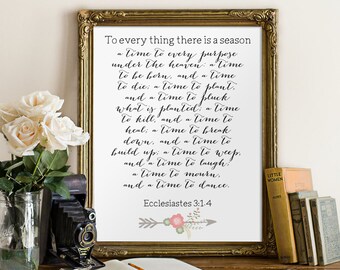 To every thing there is a season
a time to every purpose
under the heaven: a time
to be born, and a time
to die; a time to plant,
and a time to pluck
what is planted; a time
to kill, and a time to
heal; a time to break
down, and a time to
build up; a time to weep,
and a time to laugh;
a time to mourn,
and a time to dance.
Ecclesiastes 3:1.4
LITTLE WOMEN